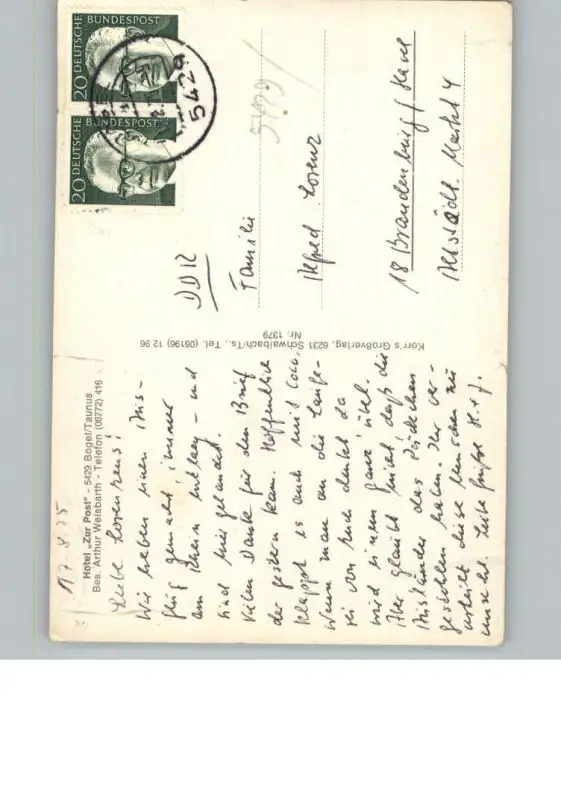 17.8.75
Hotel „Zur Post" - 5429 Bogel/Taunus
Bes. Arthur Weisbarth - Telefon (06772) 416
Liebe Lorenzens!
Wir haben einen Aus-
flug gemacht, immer
am Rhein entlang - und
sind hier gelandet.
Vielen Dank für den Brief
der gestern kam. Hoffentlich
klappt es auch mit Coco.
Wenn man an die Lauferei
von euch denkt da
wird einem ganz übel.
Ihr glaubt nicht daß die
Ausländer das Päckchen
gestohlen haben. Ihr ver-
urteilt diese Menschen zu
unrecht. Liebe Grüße H. u. J.
Korr's Großverlag, 6231 Schwalbach/Ts., Tel. (06196) 12 96
Nr. 1379
DEUTSCHE BUNDESPOST
20
DEUTSCHE BUNDESPOST
20
5429
5429/
DDR
Familie
Alfred Lorenz
18 Brandenburg/Havel
Altstädt. Markt 4